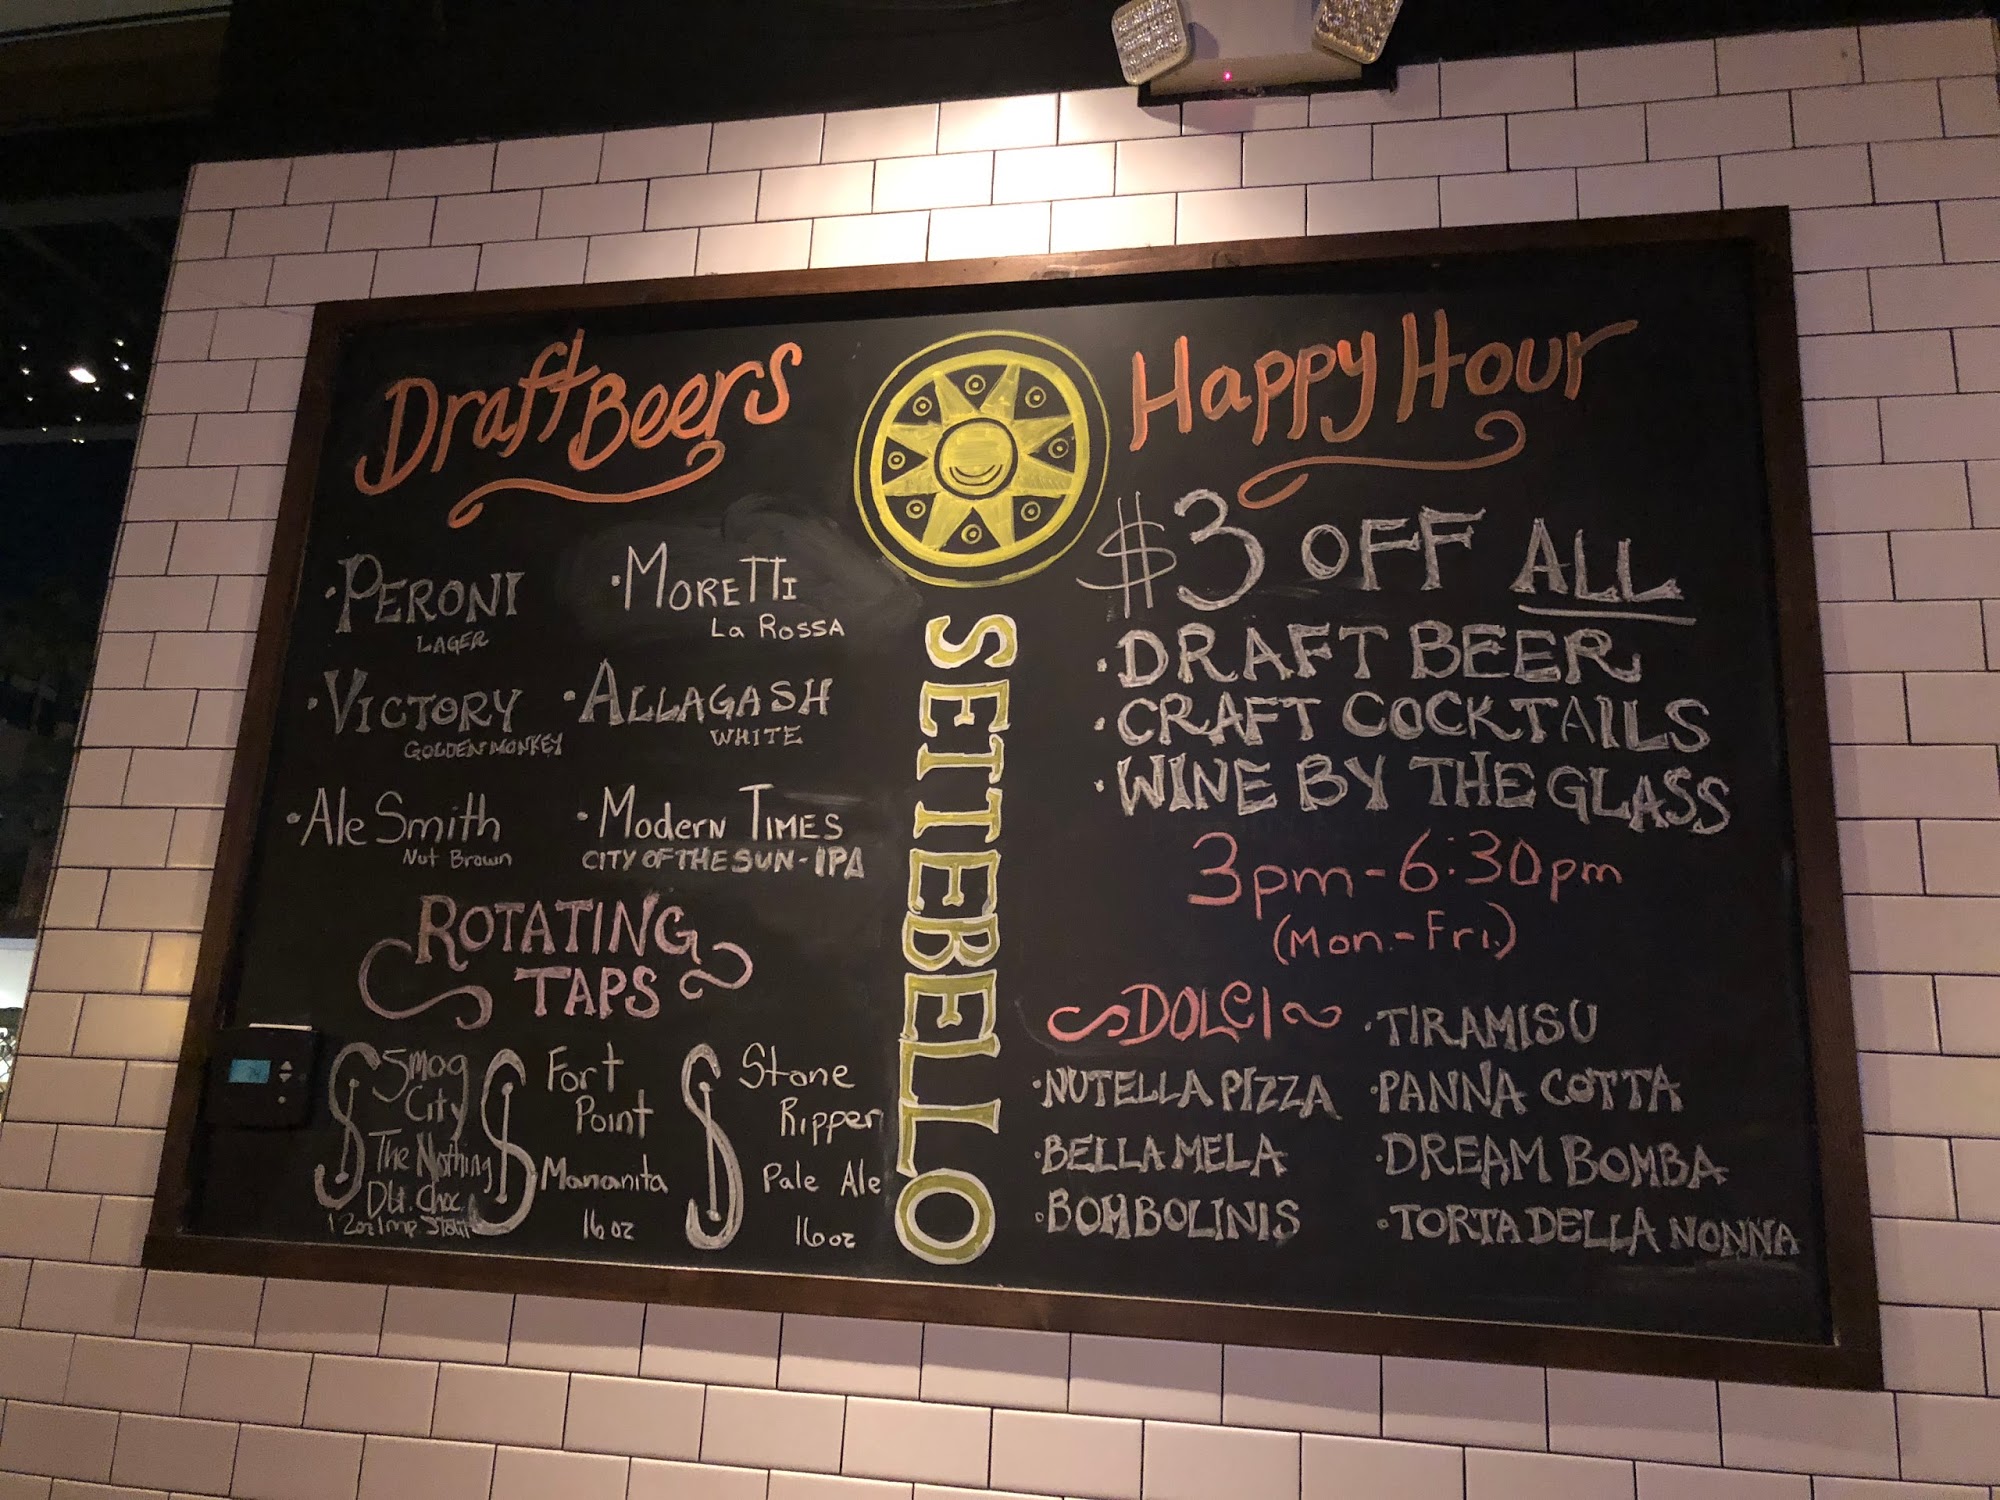 Draft Beers
·PERONI
LAGER
·MORETTI
La ROSSA
·VICTORY
GOLDEN MONKEY
·ALLAGASH
WHITE
·AleSmith
Nut Brown
·Modern TIMES
CITY OF THE SUN - IPA
ROTATING
TAPS
Smog
City
The Nothing
Dbl. Choc.
12oz Imp. Stout
Fort
Point
Mananita
16oz
Stone
Ripper
Pale Ale
16oz
SETTEBELLO
Happy Hour
$3 OFF ALL
·DRAFT BEER
·CRAFT COCKTAILS
·WINE BY THE GLASS
3pm-6:30pm
(Mon.-Fri.)
DOLCI
·NUTELLA PIZZA
·BELLA MELA
·BOMBOLINIS
·TIRAMISU
·PANNA COTTA
·DREAM BOMBA
·TORTA DELLA NONNA